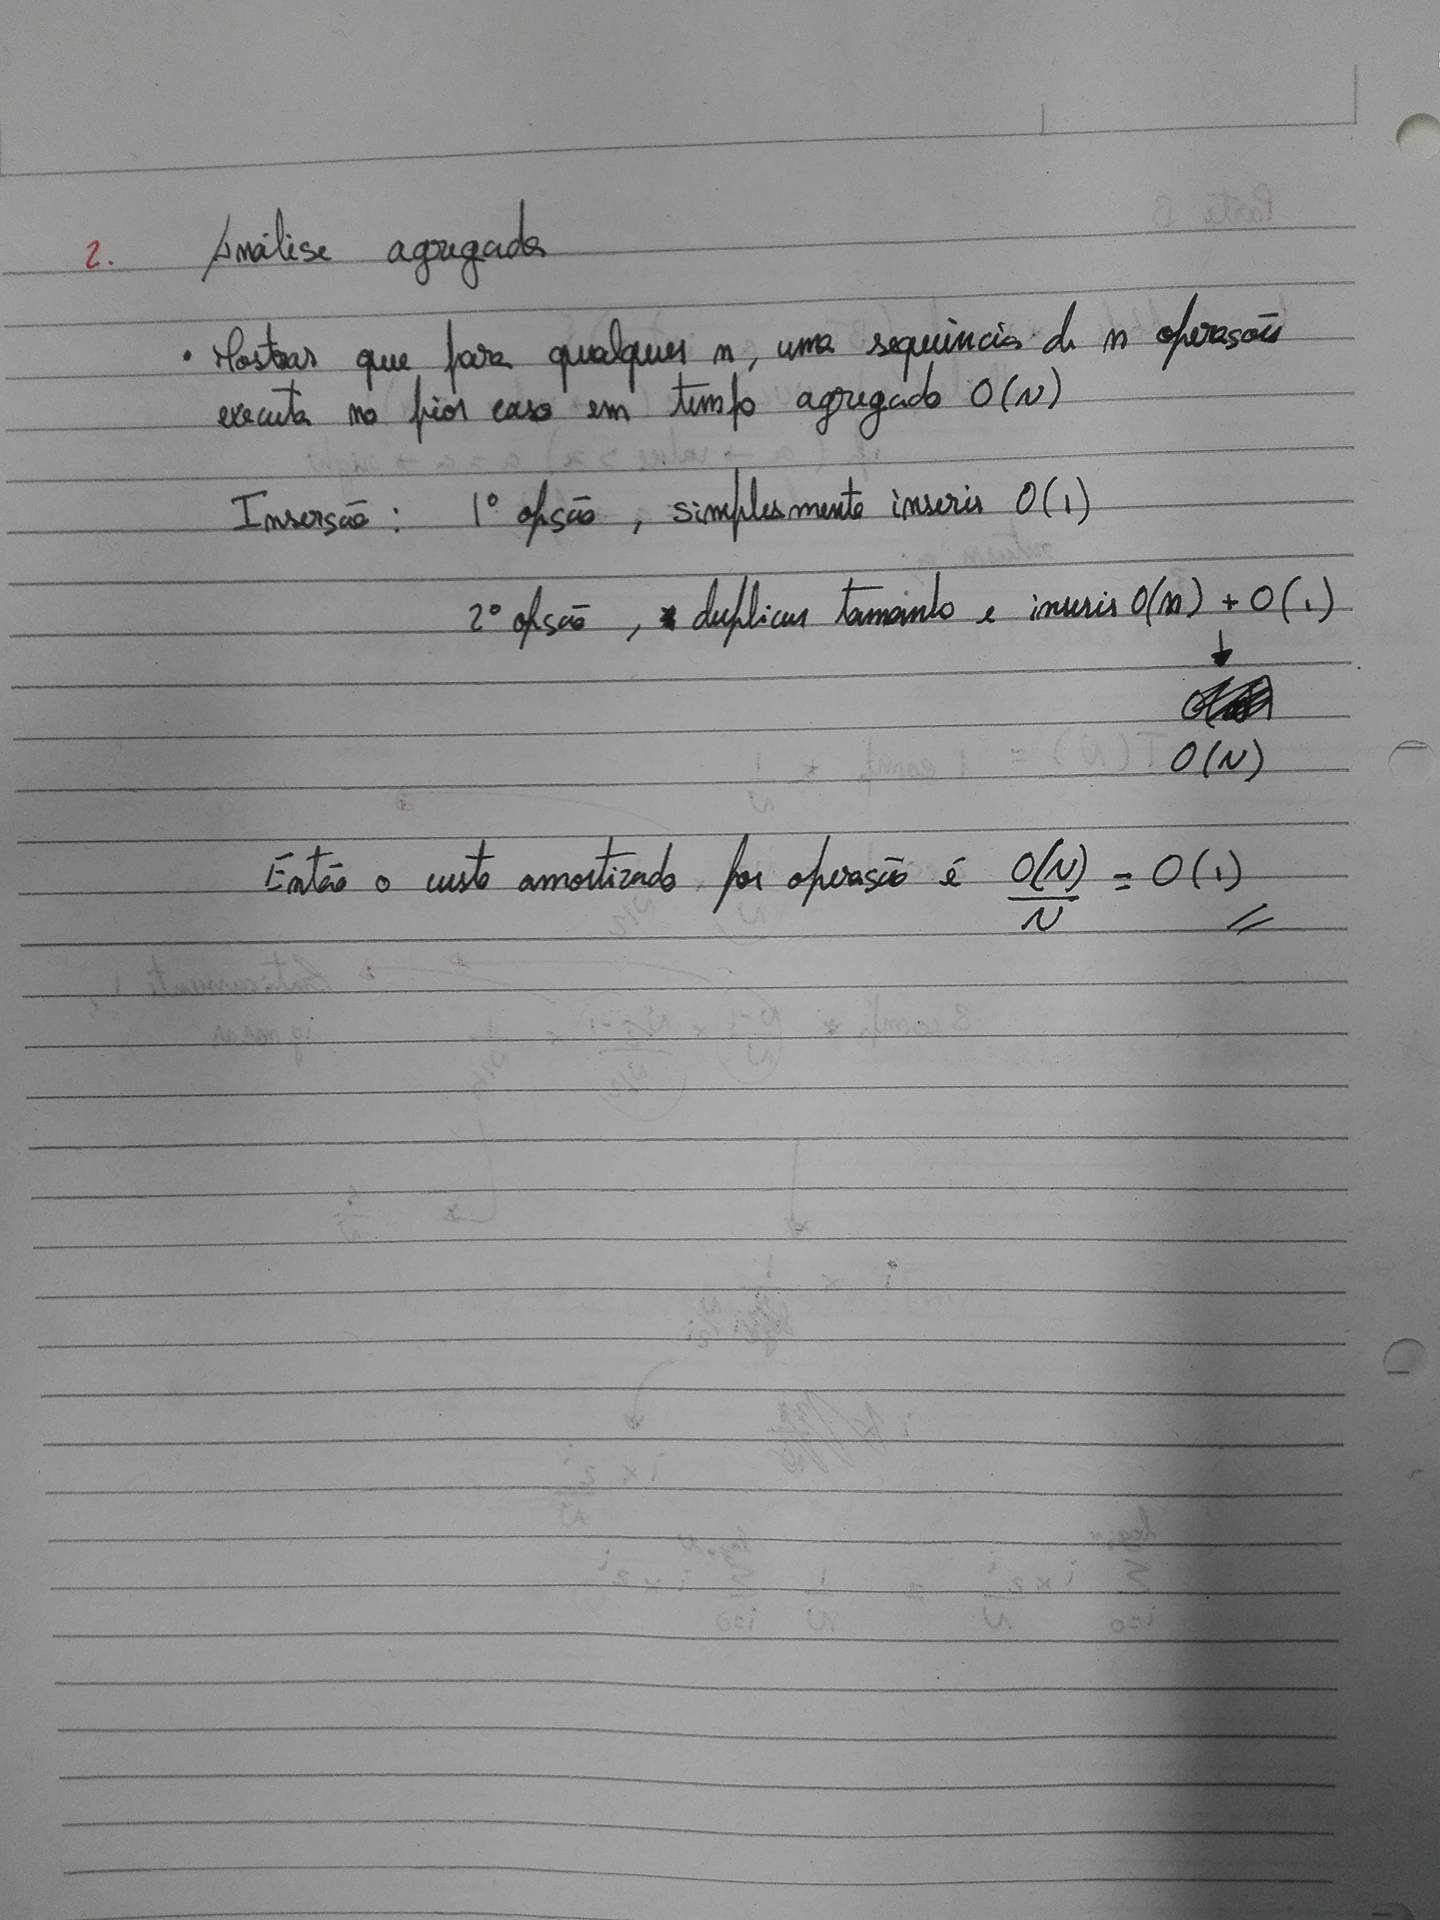 2. Análise agregada
• Mostrar que para qualquer n, uma sequência de n operações
executa no pior caso em tempo agregado O(N)
Inserção: 1º opção, simplesmente inserir O(1)
2º opção, duplicar tamanho e inserir O(n) + O(1)
↓
O(N)
Então o custo amortizado por operação é O(N)/N = O(1)